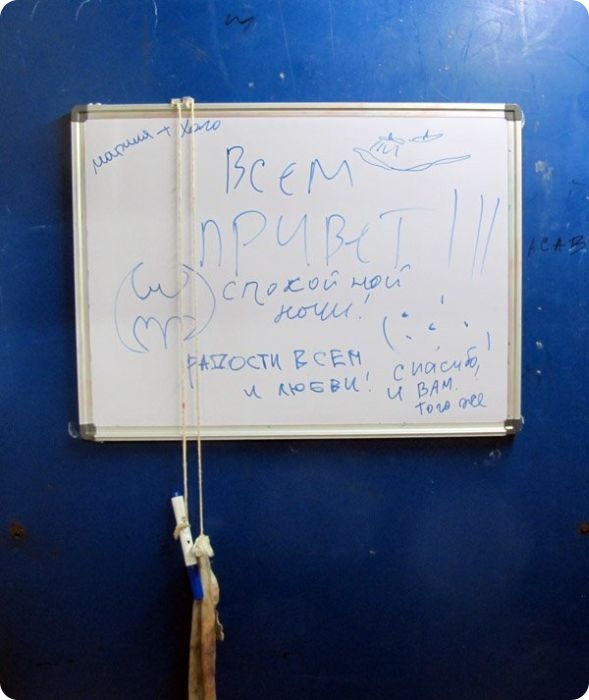 ВСЕМ
ПРИВЕТ !!!
СПОКОЙНОЙ
НОЧИ!
РАДОСТИ ВСЕМ
И ЛЮБВИ!
СПАСИБО,
И ВАМ
ТОГО ЖЕ
ACAB